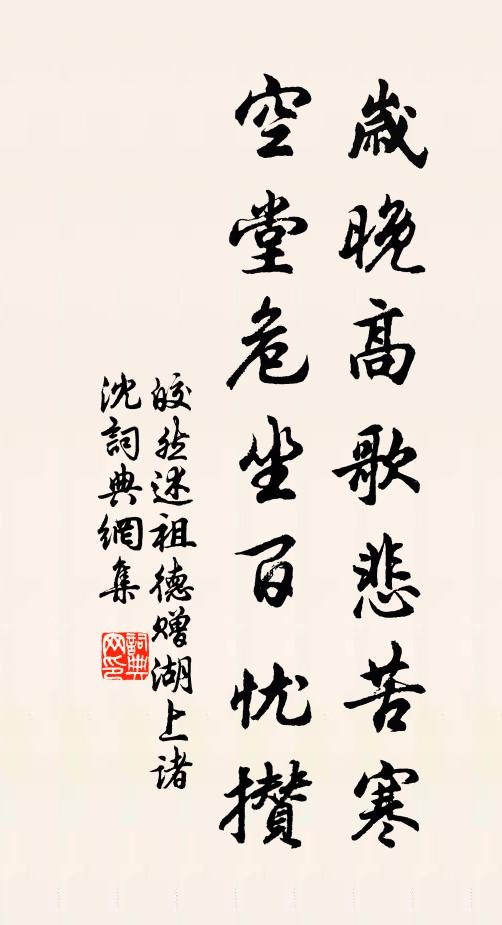 歲晚高歌悲苦寒
空堂危坐百忧攢
皎然述祖德赠湖上诸
沈詞典網集
詞典网印